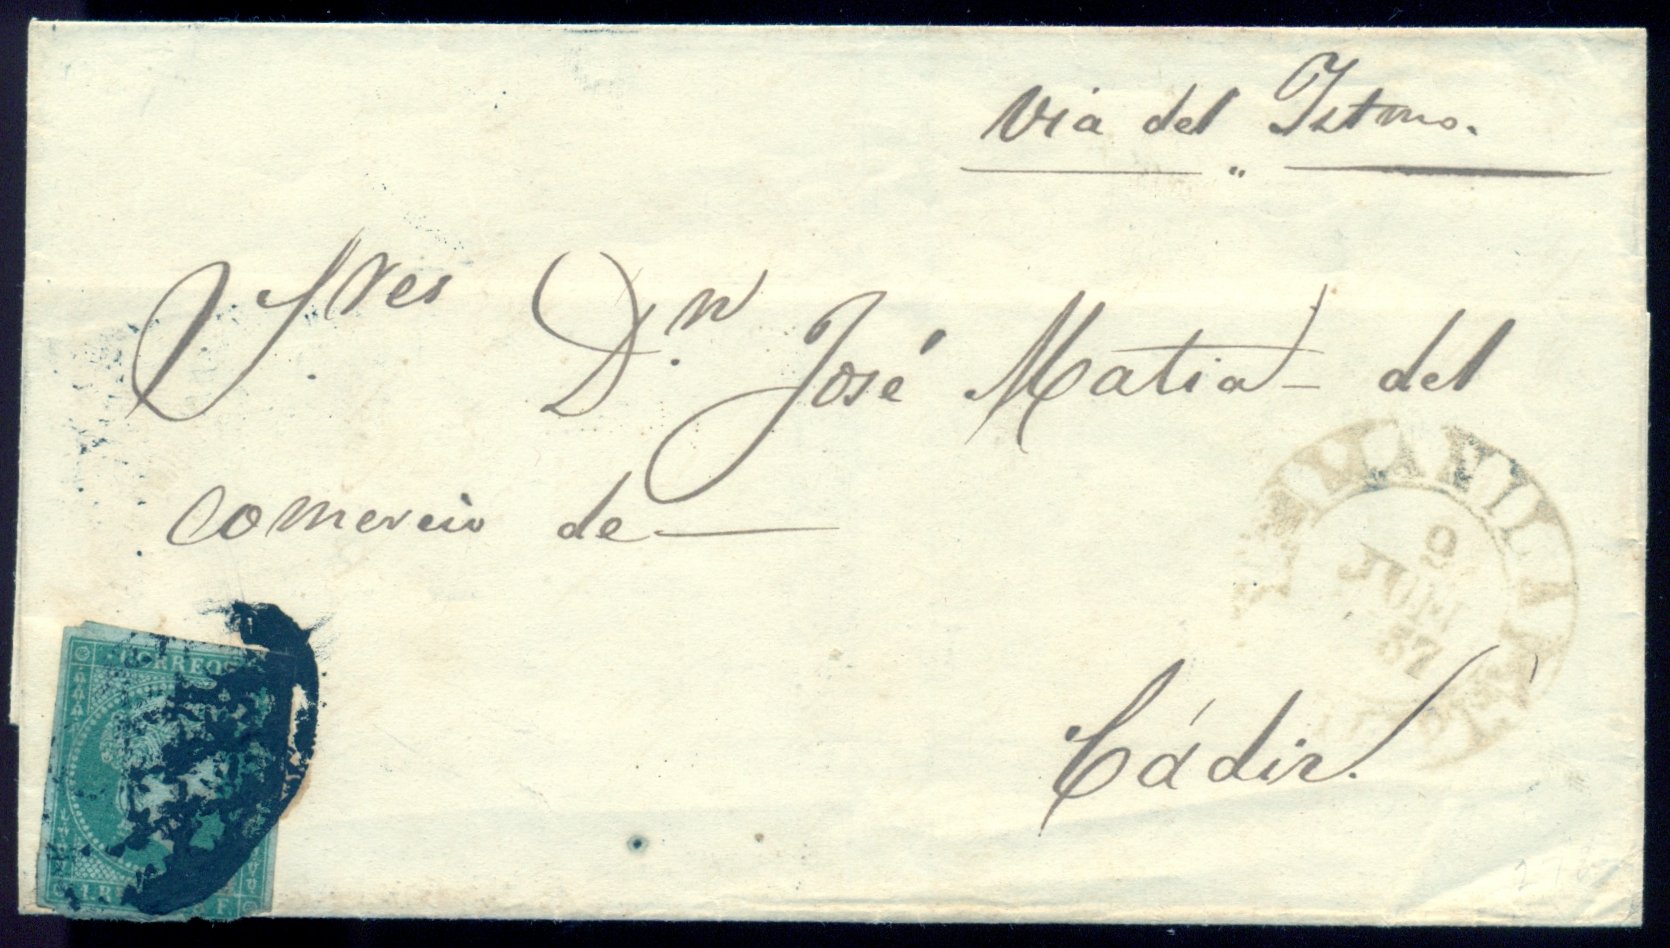 Via del Istmo.
Sres Dn. José Matia del
comercio de
Cádiz.
MANILA
9
JUN
57
CORREOS
1 R F